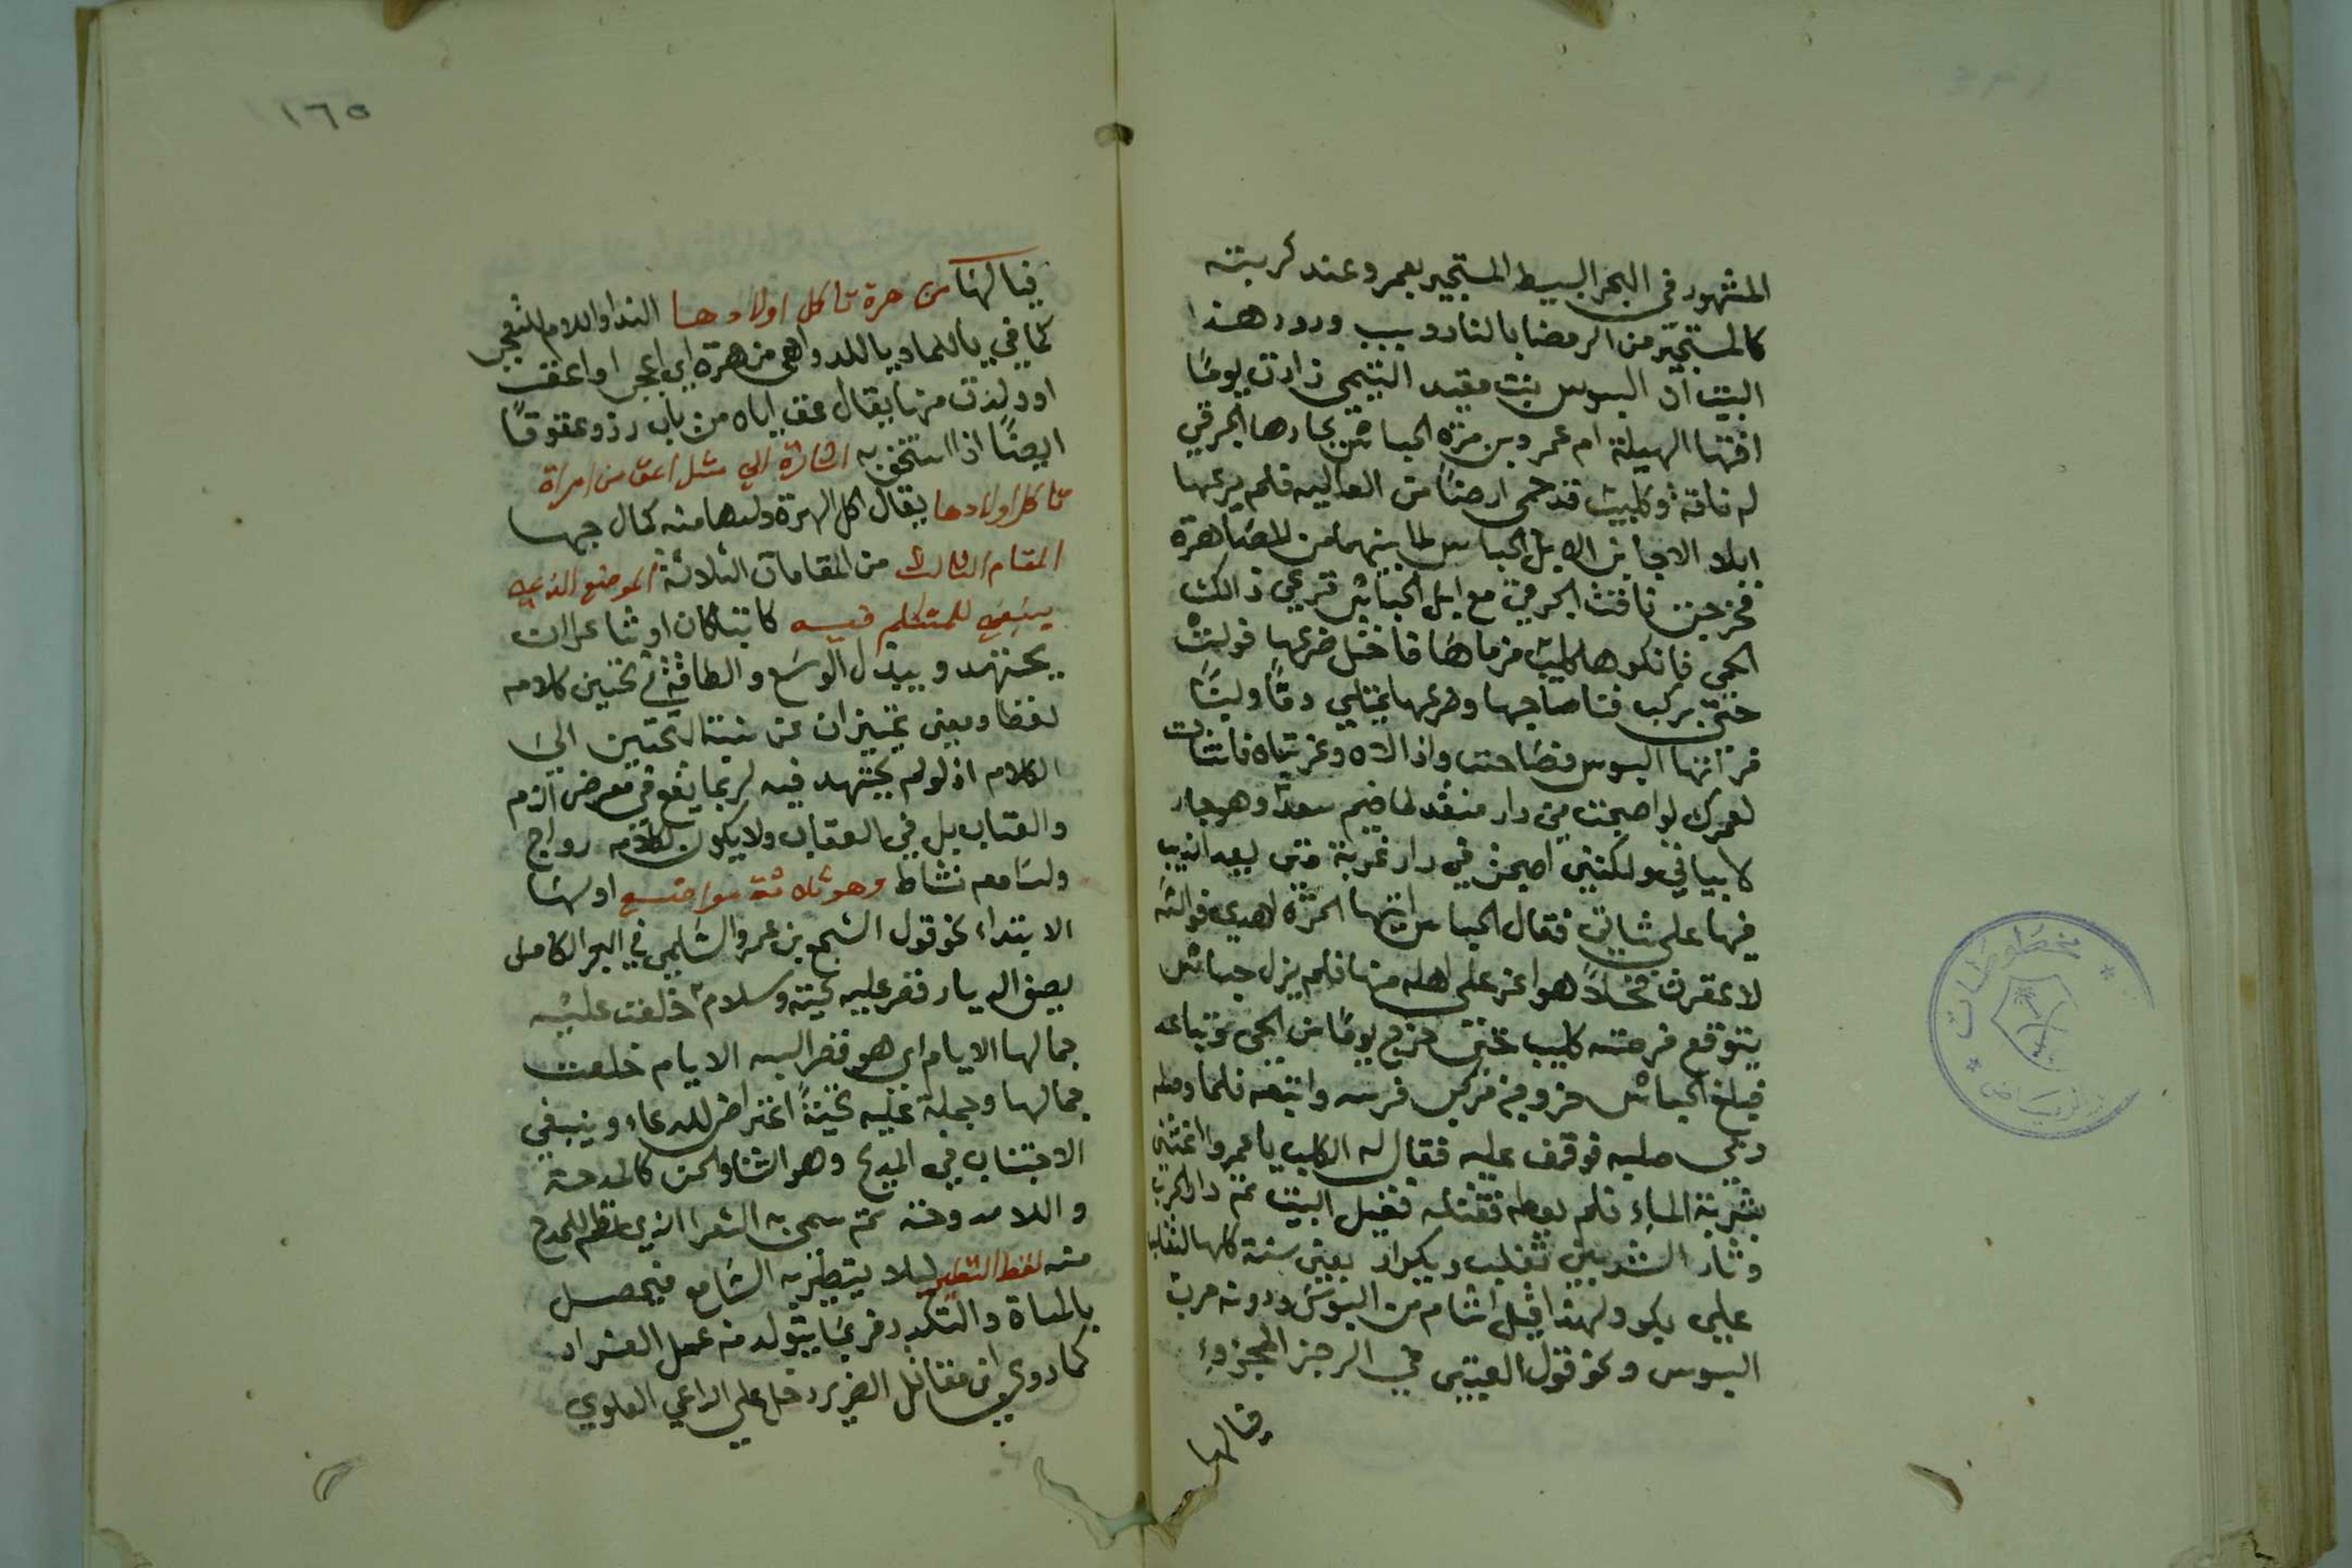 المشهور في البحر البسيط المستجير بعمرو عند كربته
كالمستجير من الرمضا بالنار وسبب ورود هذا
البيت ان البسوس بنت مقيد التيمي زارت يوما
اختها الهيلة ام عمرو بن مرة الجساس بجارها الجرمي
له ناقة وكليب قد حمى ارضا من العاليه فلم يرعها
ابلا الا جا بن الابل الجساس لما بينهما من المصاهرة
فخرجت ناقت الجرمي مع ابل الجساس ترعى ذالك
الحمى فانكرها كليب فرماها فاختل ضرعها فولت
حتى بركب فنا صاحبها وضرعها يمتلي دما ولبنا
فرأتها البسوس فصاحت واذالاه وغربتاه فانشات
لعمرك لو اصبحت في دار منقد لما ضيم سعد وهو جار
لابياتي ولكنني اصبحت في دار غربة متى يعد الذيب
فيها على شاتي فقال الجساس ايتها الحرة اهدي فوالله
لاعقرن فحلا هو اعز على اهله منها فلم يزل جساس
يتوقع فرصته كليب حتى خرج يوما من الحي تباعد
فبلغ الجساس خروجه فركب فرسه واتبعه فلما وصله
رمى صلبه فوقف عليه فقال له الكليب يا عمرو اغثني
بشربة الماء فلم يعطه فقتله فقيل البيت ثم دار الحرب
وثار الشر بين تغلب وبكر اربعين سنة كلها لتغلب
على بكر ولهذا قيل اشام من البسوس ودونه حرب
البسوس ونحو قول العربي في الرجز المجزوء
فيالها
١٦٥
فيا لها من هرة تاكل اولادها الندا واللام للتعجب
كما في يا للماء ويا للدواهي من هرة اي اعجب او اعق
او ولذت منها يقال عق اياه من باب رد وعقوقا
ايضا اذا استخف به اشارة الى مثل اعق من امراة
تاكل اولادها يقال اكل الهرة ولدها منه كمال جهها
المقام الثالث من المقامات الثلاثة الموضع الذي
ينبغي للمتكلم فيه كاتبا كان او شاعرا ان
يجتهد ويبذل الوسع والطاقة في تحسين كلامه
لفظا ومعنى تميزان عن نسبة التحسين الى
الكلام اذ لو لم يجتهد فيه لربما يقع في معرض الذم
والعتاب بل في العقاب ولا يكون لكلامه رواج
ولسامعه نشاط وهو ثلاثة مواضع اولها
الابتداء نحو قول اشجع بن عمرو السلمي في البحر الكامل
يصف الديار قصر عليه تحية وسلام خلعت عليه
جمالها الايام اي هو قصر البسه الايام خلعت
جمالها وجملة عليه تحية اعتراض للدعاء وينبغي
الاجتناب في المديح وهو الثناء الحسن كالمدحة
والامدوحة ثم سمى به الشعر الذي نظم للمدح
منه لفظ التطير ليلا يتطير به السامع فيحصل
بالمساة والتكدر فربما يتولد منه عمل الغراد
كما روي ان مقاتل الضرير دخل على الداعي العلوي
مخطوطات
الرياض